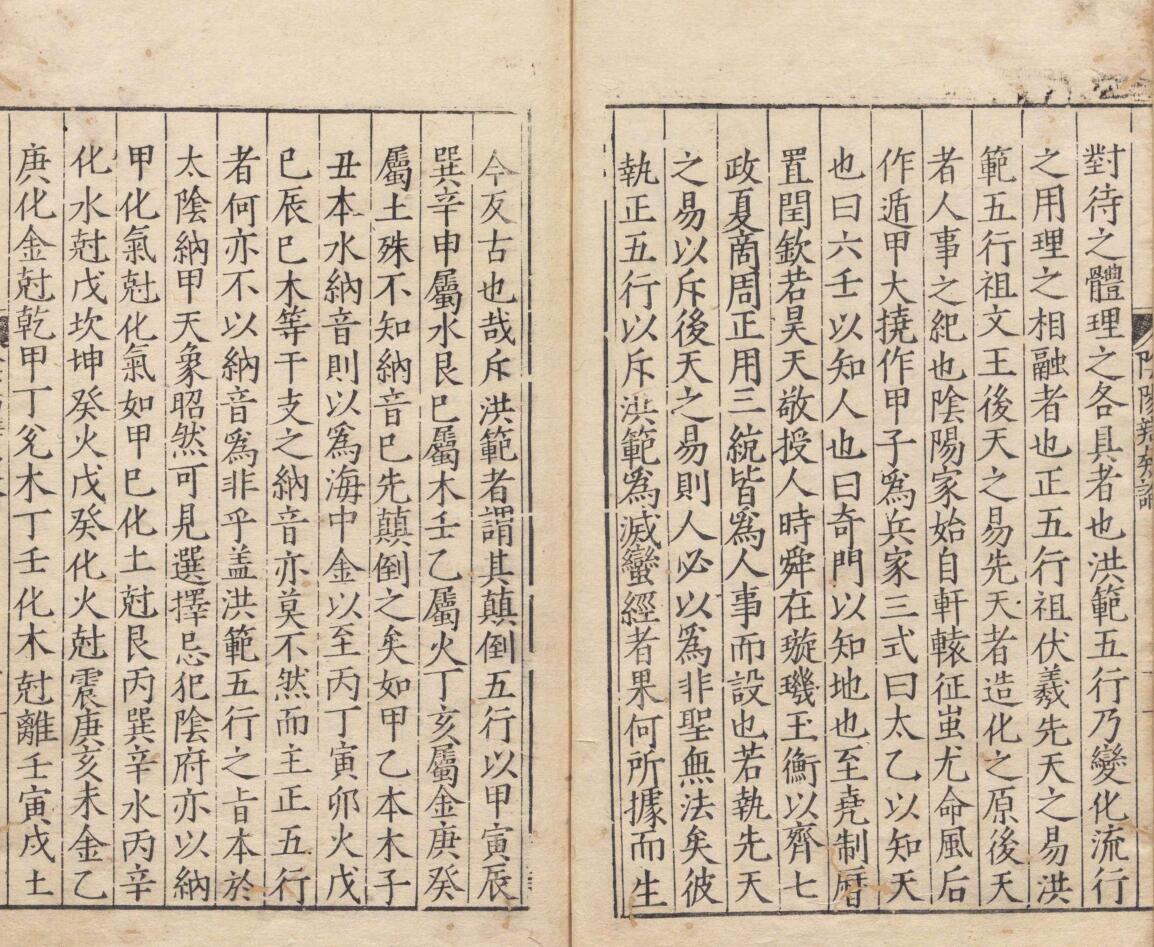 對待之體理之各具者也洪範五行乃變化流行
之用理之相融者也正五行祖伏羲先天之易洪
範五行祖文王後天之易先天者造化之原後天
者人事之紀也陰陽家始自軒轅征蚩尤命風后
作遁甲大撓作甲子爲兵家三式曰太乙以知天
也曰六壬以知人也曰奇門以知地也至堯制曆
置閏欽若昊天敬授人時舜在璇璣玉衡以齊七
政夏商周正用三綂皆爲人事而設也若執先天
之易以斥後天之易則人必以爲非聖無法矣彼
執正五行以斥洪範爲滅蠻經者果何所據而生
今反古也哉斥洪範者謂其顛倒五行以甲寅辰
巽辛申屬水艮巳屬木壬乙屬火丁亥屬金庚癸
屬土殊不知納音已先顛倒之矣如甲乙本木子
丑本水納音則以爲海中金以至丙丁寅卯火戊
巳辰巳木等干支之納音亦莫不然而主正五行
者何亦不以納音爲非乎盖洪範五行之旨本於
太陰納甲天象昭然可見選擇忌犯陰府亦以納
甲化氣尅化氣如甲巳化土尅艮丙巽辛水丙辛
化水尅戊坎坤癸火戊癸化火尅震庚亥未金乙
庚化金尅乾甲丁兊木丁壬化木尅離壬寅戌土